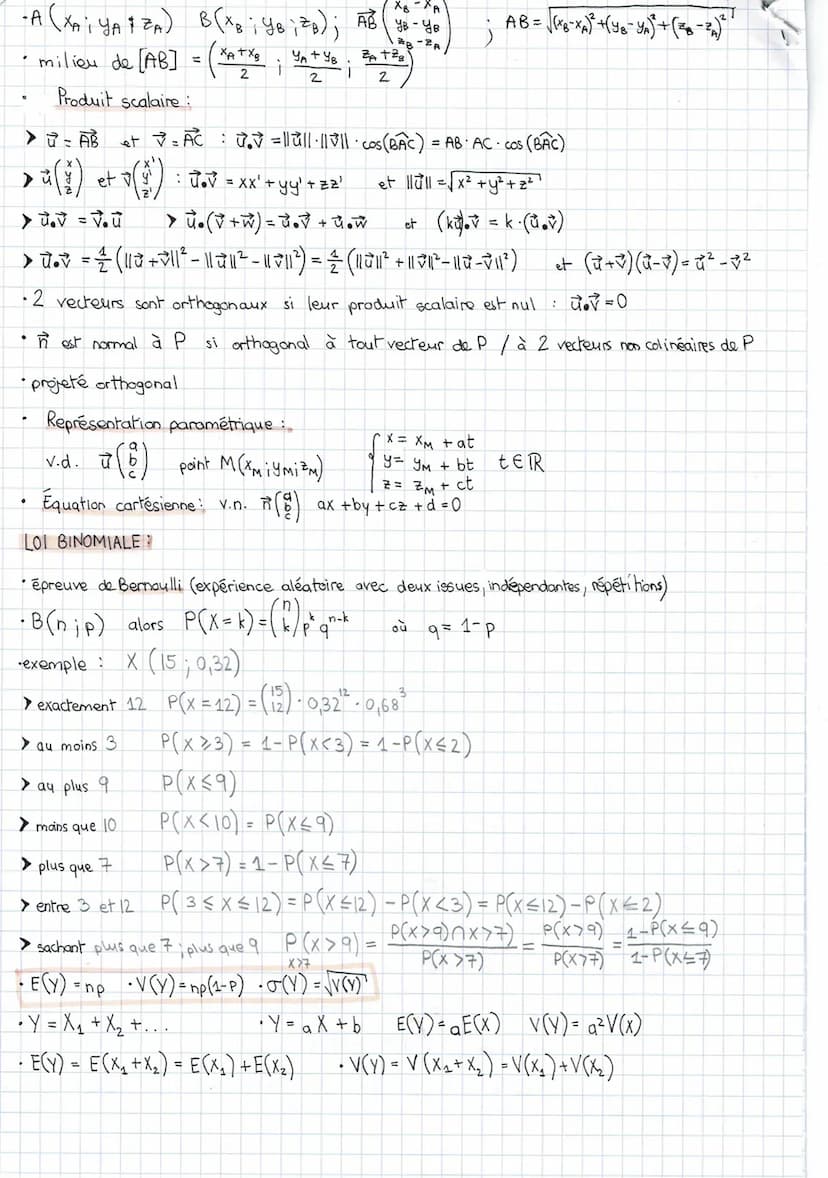 - A (xA ; yA ; zA) B(xB ; yB ; zB) ; AB→ (xB - xA yB - yB zB - zA) ; AB = √(xB-xA)²+(yB-yA)²+(zB-zA)²
• milieu de [AB] = (xA+xB/2 ; yA+yB/2 ; zA+zB/2)
• Produit scalaire :
➤ u→ = AB→ et v→ = AC→ : u→.v→ = ||u→||·||v→|| · cos(BÂC) = AB · AC · cos (BÂC)
➤ u→(x y z) et v→(x' y' z') : u→.v→ = xx' + yy' + zz' et ||u→|| = √x² + y² + z²
➤ u→.v→ = v→.u→ ➤ u→.(v→ + w→) = u→.v→ + u→.w→ et (ku→).v→ = k·(u→.v→)
➤ u→.v→ = 1/2 (||u→ + v→||² - ||u→||² - ||v→||²) = 1/2 (||u→||² + ||v→||² - ||u→ - v→||²) et (u→+v→)(u→-v→) = u→² - v→²
• 2 vecteurs sont orthogonaux si leur produit scalaire est nul : u→.v→ = 0
• n→ est normal à P si orthogonal à tout vecteur de P / à 2 vecteurs non colinéaires de P
• projeté orthogonal
• Représentation paramétrique :
v.d. u→(a b c) point M(xM ; yM ; zM) { x = xM + at y = yM + bt z = zM + ct t ∈ ℝ
• Équation cartésienne : v.n. n→(a b c) ax + by + cz + d = 0
LOI BINOMIALE :
• épreuve de Bernoulli (expérience aléatoire avec deux issues, indépendantes, répétitions)
• B(n ; p) alors P(X = k) = (n k) p^k q^n-k où q = 1 - p
• exemple : X (15 ; 0,32)
➤ exactement 12 P(X = 12) = (15 12) · 0,32¹² · 0,68³
➤ au moins 3 P(X ⩾ 3) = 1 - P(X < 3) = 1 - P(X ⩽ 2)
➤ au plus 9 P(X ⩽ 9)
➤ moins que 10 P(X < 10) = P(X ⩽ 9)
➤ plus que 7 P(X > 7) = 1 - P(X ⩽ 7)
➤ entre 3 et 12 P(3 ⩽ X ⩽ 12) = P(X ⩽ 12) - P(X < 3) = P(X ⩽ 12) - P(X ⩽ 2)
➤ sachant plus que 7 ; plus que 9 P X>7 (X > 9) = P(X > 9) ∩ X > 7) / P(X > 7) = P(X > 9) / P(X > 7) = 1 - P(X ⩽ 9) / 1 - P(X ⩽ 7)
• E(Y) = np • V(Y) = np(1-p) • σ(Y) = √V(Y)
• Y = X₁ + X₂ + ... • Y = aX + b E(Y) = aE(X) V(Y) = a²V(X)
• E(Y) = E(X₁ + X₂) = E(X₁) + E(X₂) • V(Y) = V(X₁ + X₂) = V(X₁) + V(X₂)